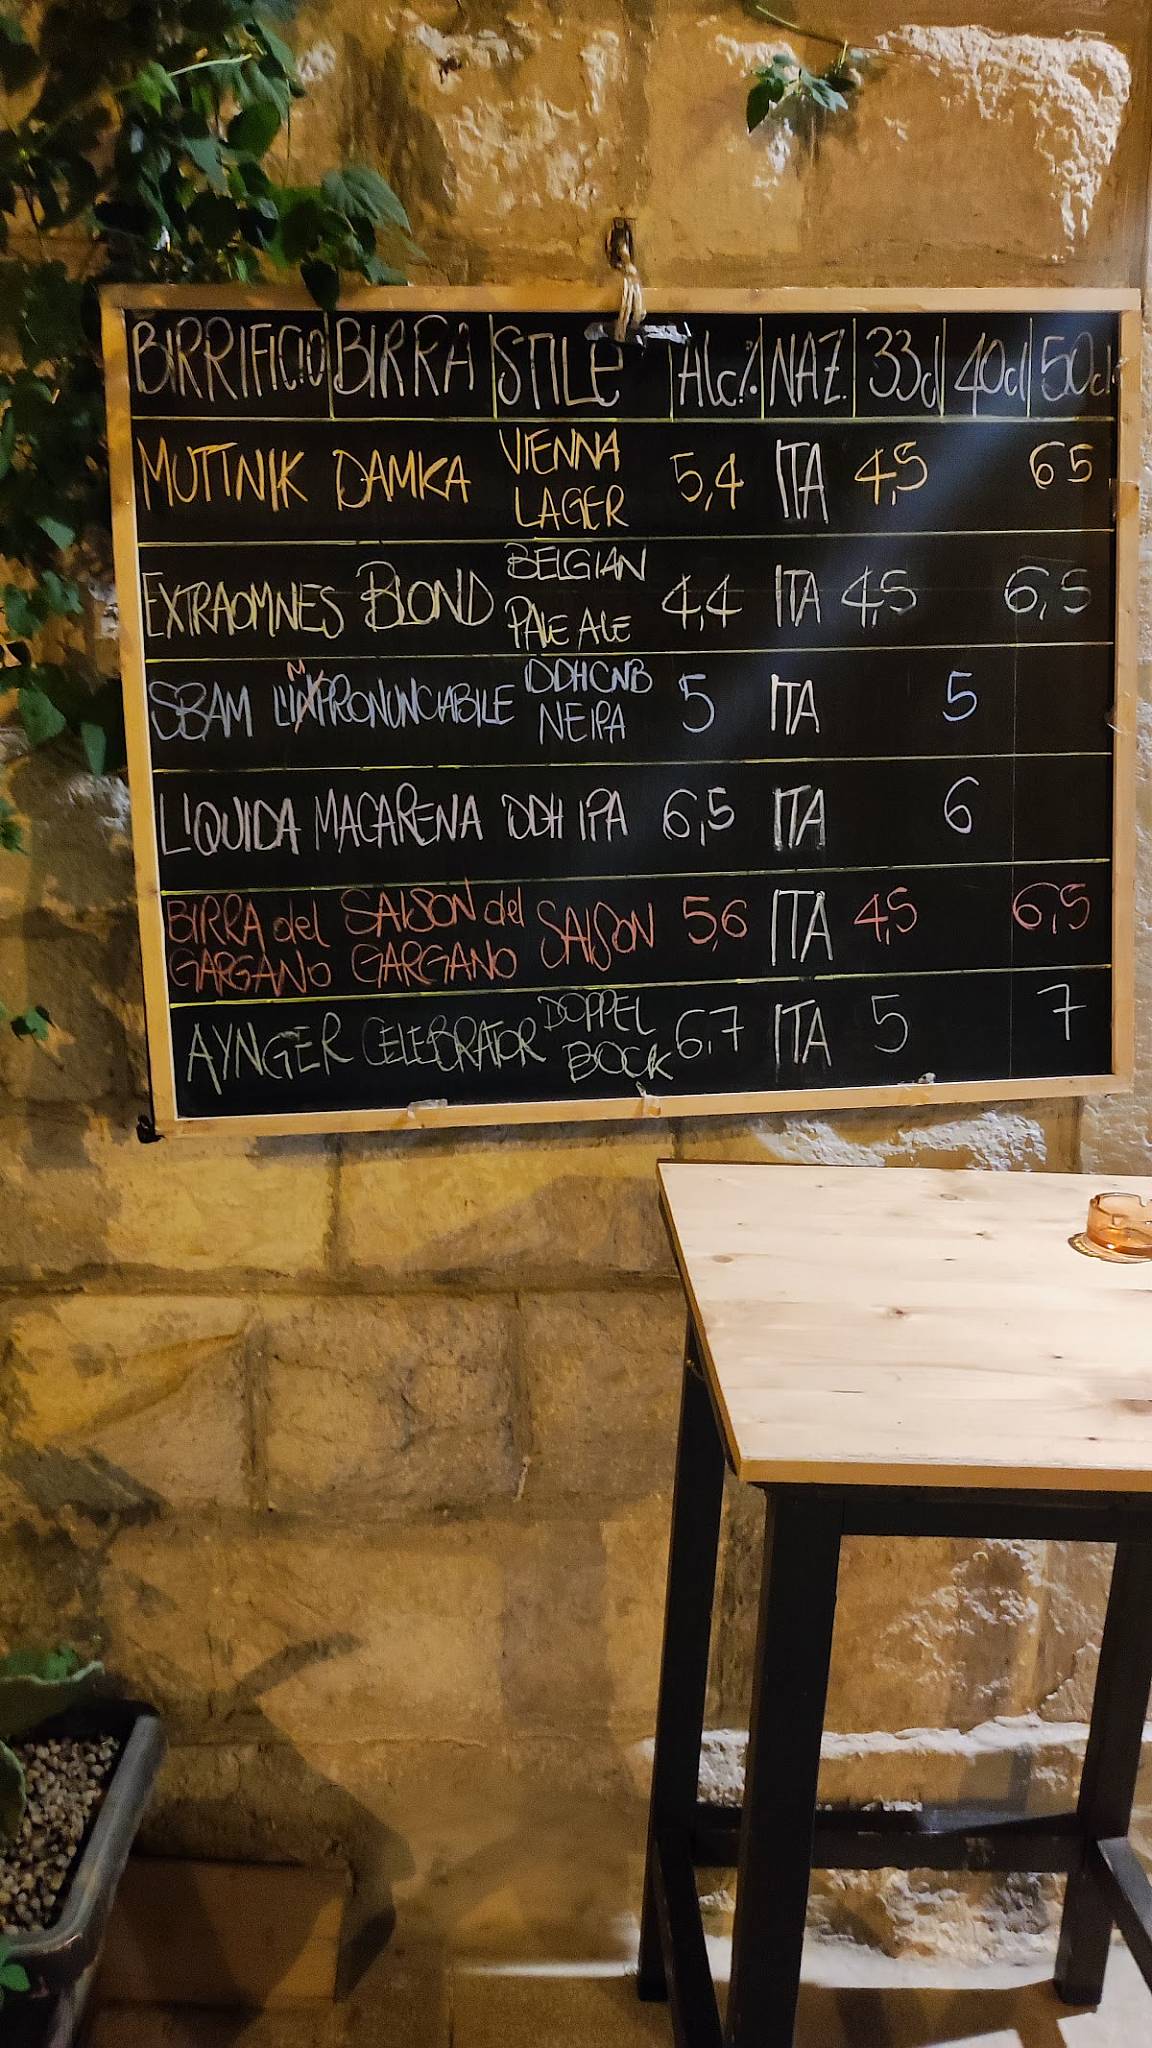 BIRRIFICIO BIRRA STILE Alc% NAZ. 33cl 40cl 50cl
MUTTNIK DAMKA VIENNA LAGER 5,4 ITA 4,5 65
EXTRAOMNES BLOND BELGIAN PALE ALE 4,4 ITA 4,5 6,5
SBAM L'IMPRONUNCIABILE DDHCNB NEIPA 5 ITA 5
LIQUIDA MACARENA DDH IPA 6,5 ITA 6
BIRRA del GARGANO SAISON del GARGANO SAISON 5,6 ITA 4,5 6,5
AYNGER CELEBRATOR DOPPEL BOCK 6,7 ITA 5 7